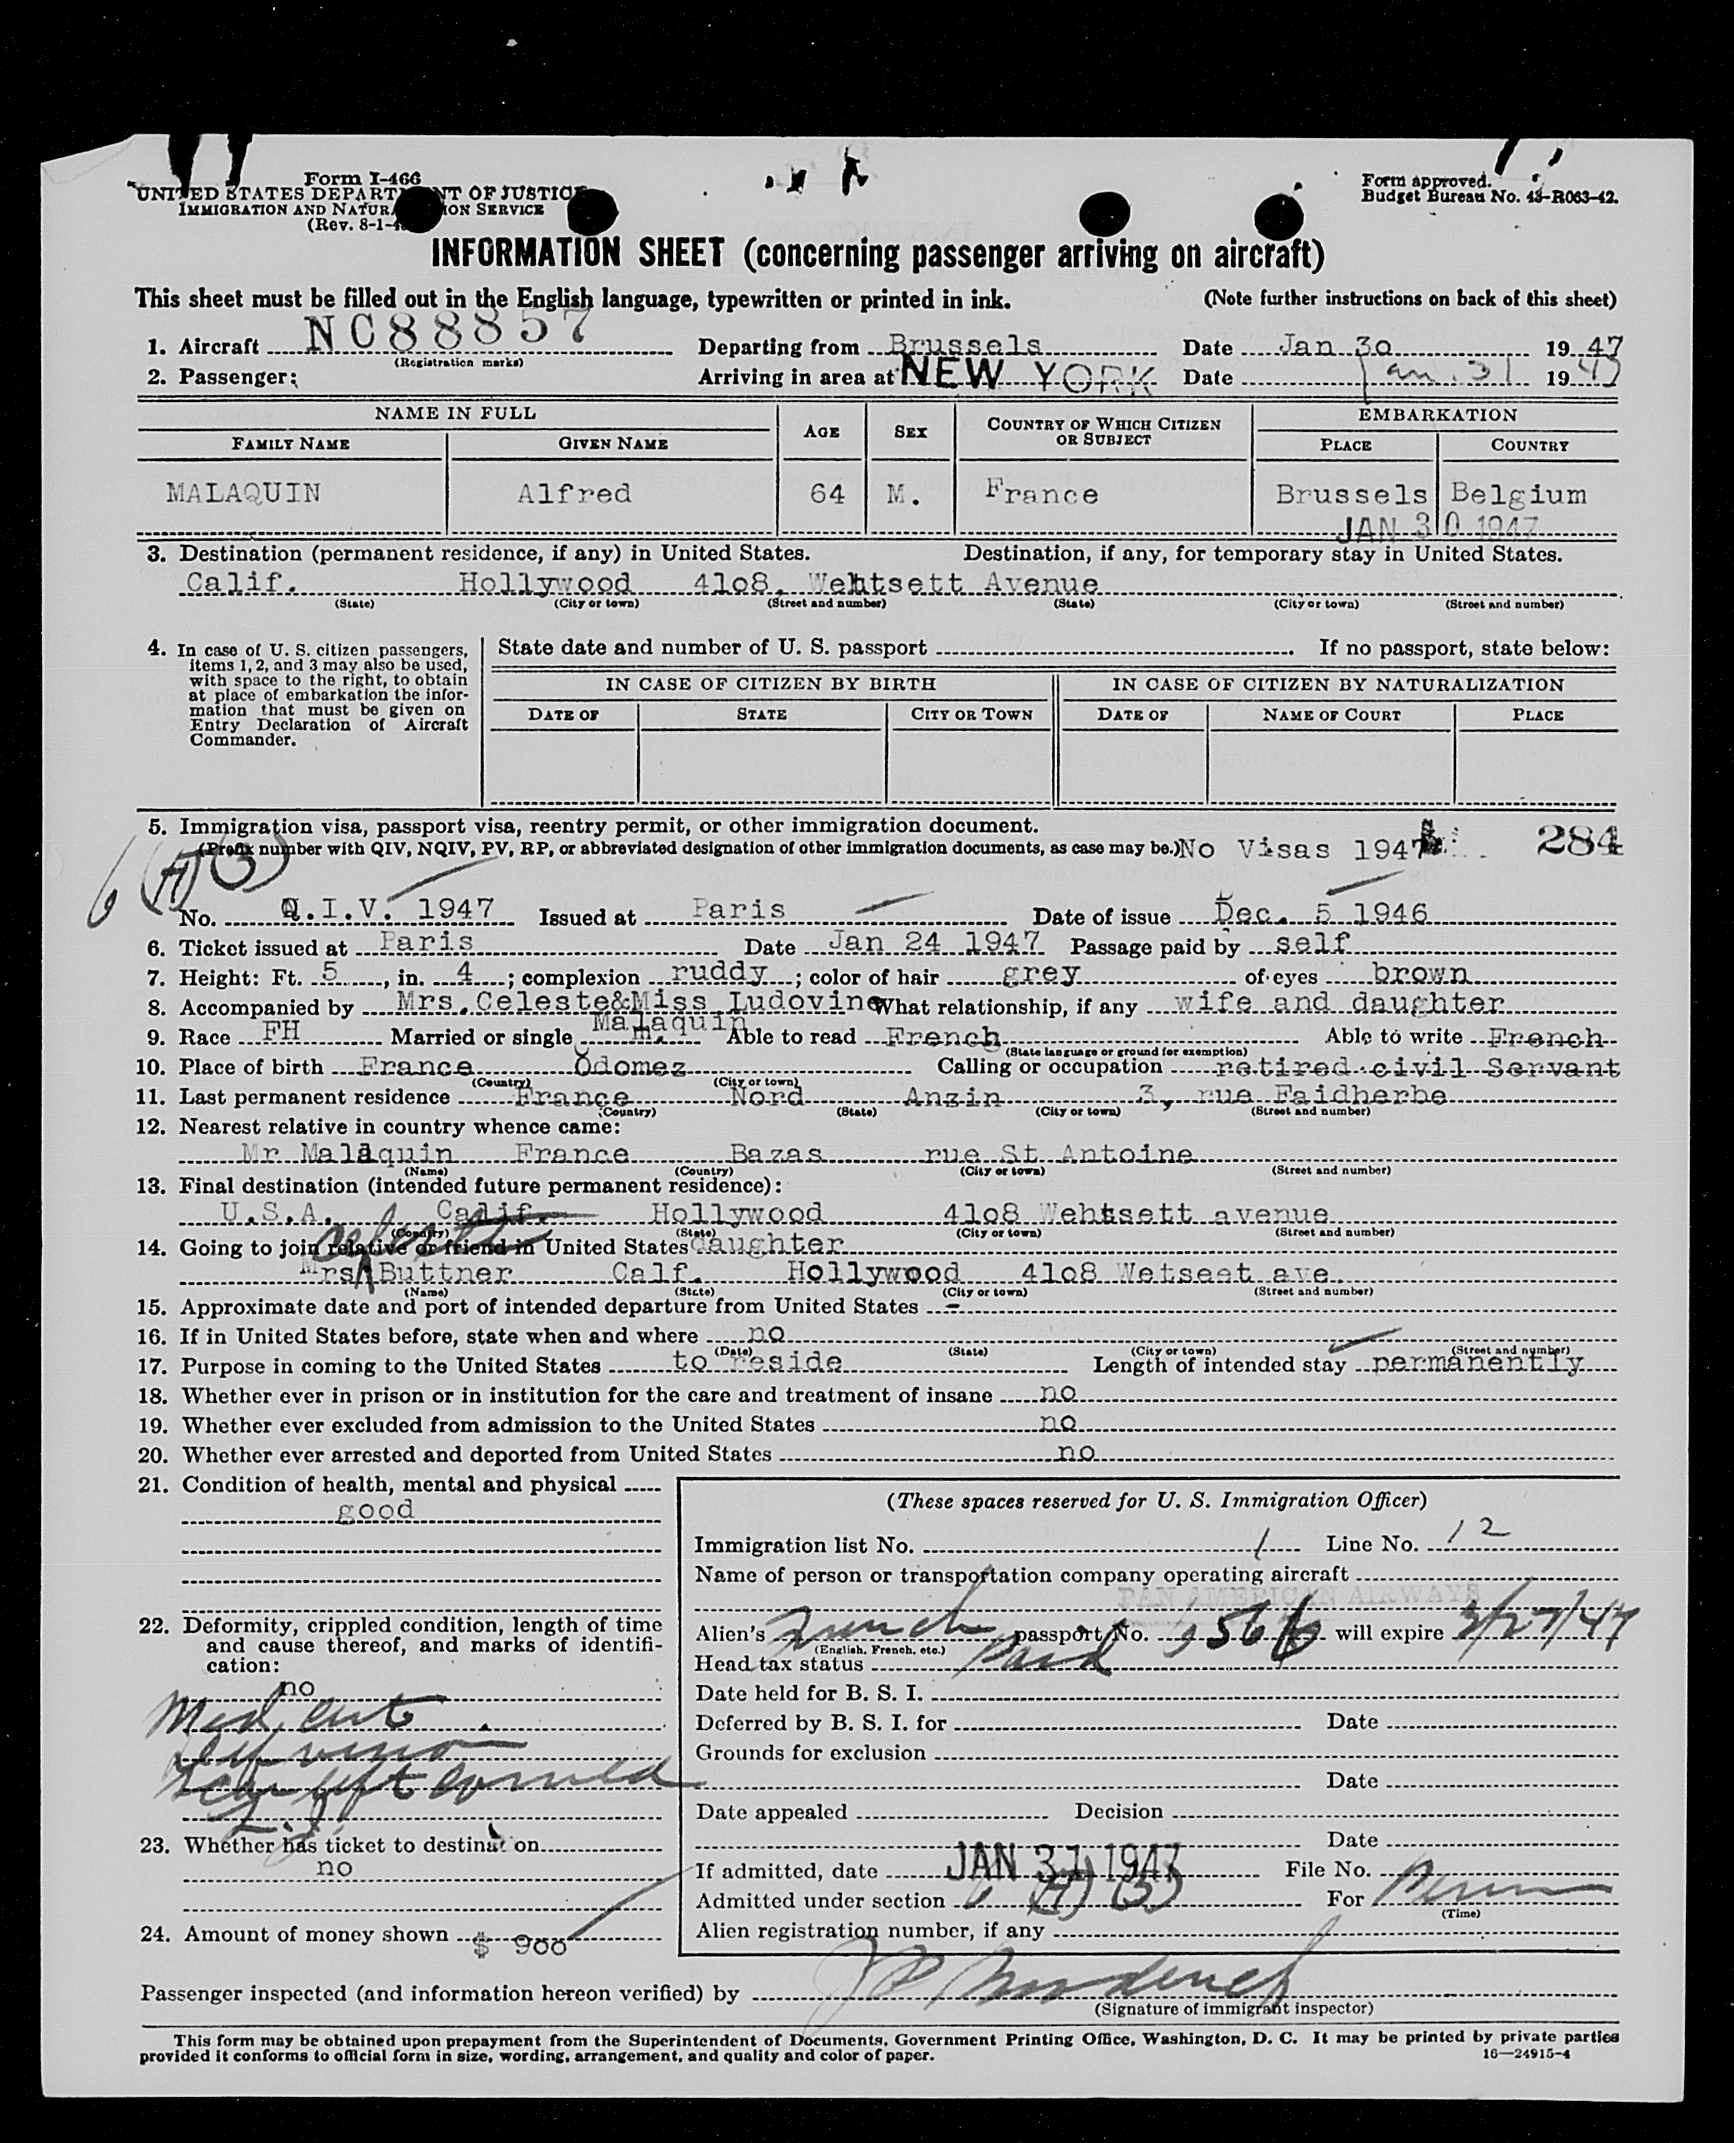 Form I-466
UNITED STATES DEPARTMENT OF JUSTICE
IMMIGRATION AND NATURALIZATION SERVICE
(Rev. 8-1-4
Form approved.
Budget Bureau No. 43-R063-42.
INFORMATION SHEET (concerning passenger arriving on aircraft)
This sheet must be filled out in the English language, typewritten or printed in ink. (Note further instructions on back of this sheet)
1. Aircraft NC88857 Departing from Brussels Date Jan 30 1947
(Registration marks)
2. Passenger: Arriving in area at NEW YORK Date Jan. 31 1947
NAME IN FULL AGE SEX COUNTRY OF WHICH CITIZEN OR SUBJECT EMBARKATION
FAMILY NAME GIVEN NAME PLACE COUNTRY
MALAQUIN Alfred 64 M. France Brussels Belgium
JAN 30 1947
3. Destination (permanent residence, if any) in United States. Destination, if any, for temporary stay in United States.
Calif. Hollywood 4108, Wehtsett Avenue
(State) (City or town) (Street and number) (State) (City or town) (Street and number)
4. In case of U. S. citizen passengers, items 1, 2, and 3 may also be used, with space to the right, to obtain at place of embarkation the information that must be given on Entry Declaration of Aircraft Commander.
State date and number of U. S. passport If no passport, state below:
IN CASE OF CITIZEN BY BIRTH IN CASE OF CITIZEN BY NATURALIZATION
DATE OF STATE CITY OR TOWN DATE OF NAME OF COURT PLACE
5. Immigration visa, passport visa, reentry permit, or other immigration document.
(Prefix number with QIV, NQIV, PV, RP, or abbreviated designation of other immigration documents, as case may be.) No Visas 1947 284
6 (A) (3)
No. Q.I.V. 1947 Issued at Paris Date of issue Dec. 5 1946
6. Ticket issued at Paris Date Jan 24 1947 Passage paid by self
7. Height: Ft. 5, in. 4; complexion ruddy; color of hair grey of eyes brown
8. Accompanied by Mrs. Celeste&Miss Ludovine What relationship, if any wife and daughter
Malaquin
9. Race FH Married or single m. Able to read French Able to write French
(State language or ground for exemption)
10. Place of birth France Odomez Calling or occupation retired civil Servant
(Country) (City or town)
11. Last permanent residence France Nord Anzin 3, rue Faidherbe
(Country) (State) (City or town) (Street and number)
12. Nearest relative in country whence came:
Mr Malaquin France Bazas rue St Antoine
(Name) (Country) (City or town) (Street and number)
13. Final destination (intended future permanent residence):
U.S.A. Calif. Hollywood 4108 Wehtsett avenue
(Country) (State) (City or town) (Street and number)
14. Going to join relative or friend in United States daughter
Mrs Buttner Calf. Hollywood 4108 Wetseet ave.
(Name) (State) (City or town) (Street and number)
15. Approximate date and port of intended departure from United States -
16. If in United States before, state when and where no
(Date) (State) (City or town) (Street and number)
17. Purpose in coming to the United States to reside Length of intended stay permanently
18. Whether ever in prison or in institution for the care and treatment of insane no
19. Whether ever excluded from admission to the United States no
20. Whether ever arrested and deported from United States no
21. Condition of health, mental and physical
good
22. Deformity, crippled condition, length of time and cause thereof, and marks of identification:
no
Med. cert
23. Whether has ticket to destination
no
24. Amount of money shown $ 900
(These spaces reserved for U. S. Immigration Officer)
Immigration list No. 1 Line No. 12
Name of person or transportation company operating aircraft
PAN AMERICAN AIRWAYS
Alien's French passport No. will expire 3/27/47
(English, French, etc.)
Head tax status Paid
Date held for B. S. I.
Deferred by B. S. I. for Date
Grounds for exclusion
Date
Date appealed Decision
Date
If admitted, date JAN 31 1947 File No.
Admitted under section 6 (A) (3) For Perm
(Time)
Alien registration number, if any
Passenger inspected (and information hereon verified) by
(Signature of immigrant inspector)
This form may be obtained upon prepayment from the Superintendent of Documents, Government Printing Office, Washington, D. C. It may be printed by private parties
provided it conforms to official form in size, wording, arrangement, and quality and color of paper.
16—24915-4